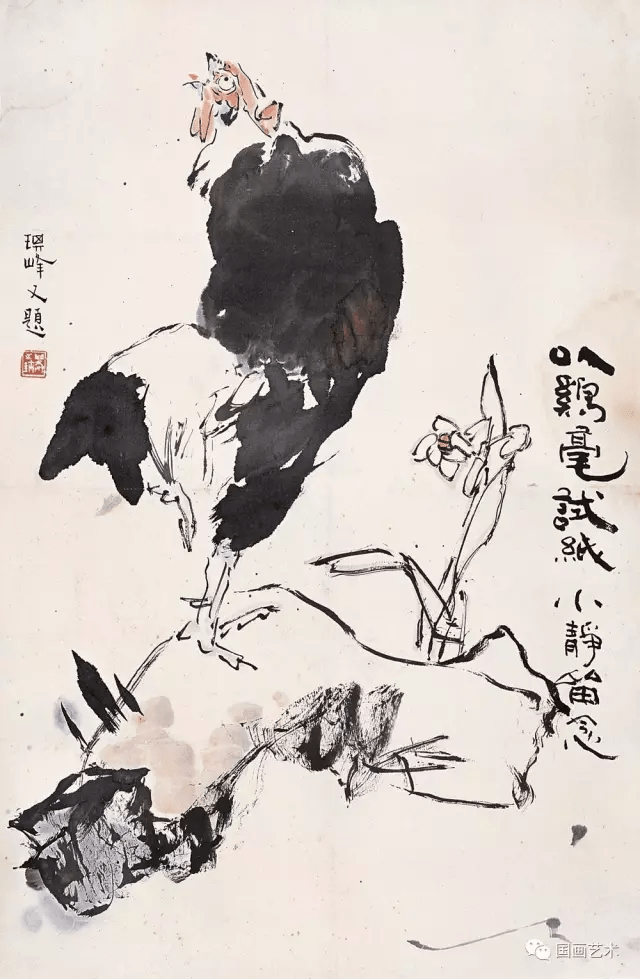 以鷄毫試紙 小靜留念
琪峰又題
国画艺术